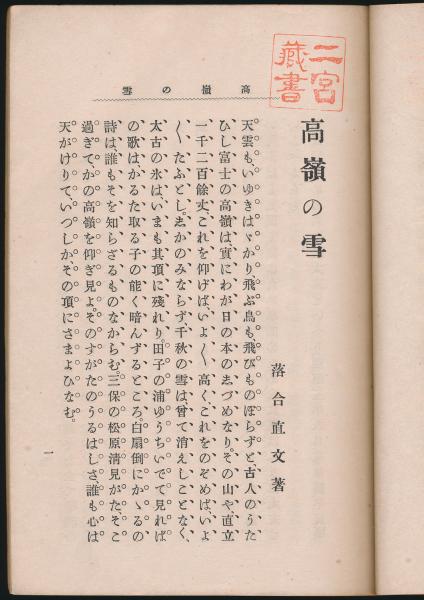 二宮
藏書
高嶺の雪
高嶺の雪
落合直文著
天雲も、いゆきはゞかり、飛ぶ鳥も、飛びものぼらずと、古人のうた
ひし富士の高嶺は、實にわが日の本のしづめなり。その山や、直立
一千二百餘丈、これを仰げば、いよ〳〵高く、これをのぞめば、いよ
〳〵たふとし。しかのみならず、千秋の雪は、曾て消えしことなく、
太古の氷は、いまも其頂に殘れり。田子の浦ゆうちいでて見れば
の歌は、かるた取る子の能く暗んずるところ、白扇倒にかゝるの
詩は、誰もそを知らざるものなからむ。三保の松原、淸見がた、そこ
過ぎて、かの高嶺を仰ぎ見よ。そのすがたのうるはしさ、誰も心は
天がけりて、いつしか、その頂にさまよひなむ。
一